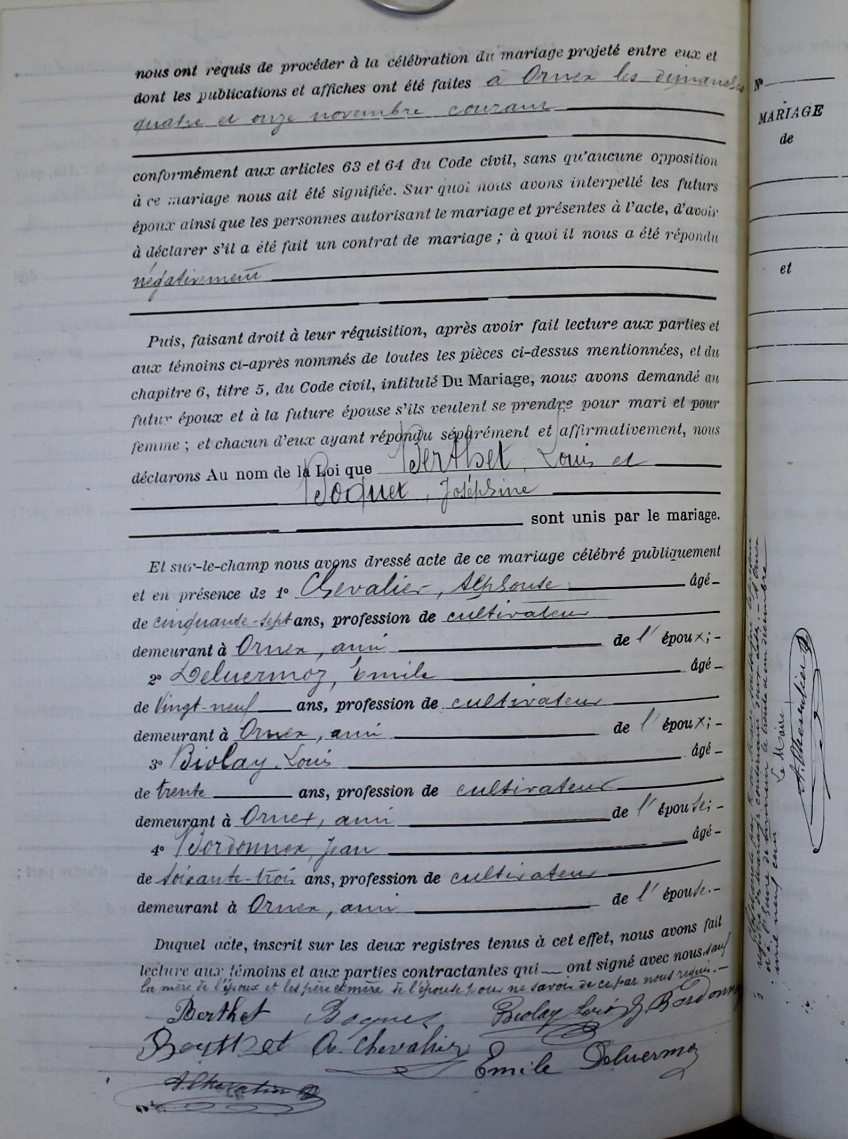 nous ont requis de procéder à la célébration du mariage projeté entre eux et
dont les publications et affiches ont été faites à Ornex les dimanches
quatre et onze novembre courant
conformément aux articles 63 et 64 du Code civil, sans qu'aucune opposition
à ce mariage nous ait été signifiée. Sur quoi nous avons interpellé les futurs
époux ainsi que les personnes autorisant le mariage et présentes à l'acte, d'avoir
à déclarer s'il a été fait un contrat de mariage ; à quoi il nous a été répondu
négativement
Puis, faisant droit à leur réquisition, après avoir fait lecture aux parties et
aux témoins ci-après nommés de toutes les pièces ci-dessus mentionnées, et du
chapitre 6, titre 5, du Code civil, intitulé Du Mariage, nous avons demandé au
futur époux et à la future épouse s'ils veulent se prendre pour mari et pour
femme ; et chacun d'eux ayant répondu séparément et affirmativement, nous
déclarons Au nom de la Loi que Berthet, Louis et
Boquet, Joséphine
sont unis par le mariage.
Et sur-le-champ nous avons dressé acte de ce mariage célébré publiquement
et en présence de 1º Chevalier, Alphonse âgé
de cinquante-sept ans, profession de cultivateur
demeurant à Ornex, ami de l'époux ; 
2º Deluermoz, Emile âgé
de vingt-neuf ans, profession de cultivateur
demeurant à Ornex, ami de l'époux ; 
3º Biolay, Louis âgé
de trente ans, profession de cultivateur
demeurant à Ornex, ami de l'épouse ; 
4º Bordonnex, Jean âgé
de soixante-trois ans, profession de cultivateur
demeurant à Ornex, ami de l'épouse.
Duquel acte, inscrit sur les deux registres tenus à cet effet, nous avons fait
lecture aux témoins et aux parties contractantes qui ont signé avec nous sauf
la mère de l'époux et les père et mère de l'épouse pour ne savoir de ce par nous requis.
Berthet Boquet Biolay Louis J. Bordonnex
Berthet A. Chevalier Emile Deluermoz
Nº
MARIAGE
de
et
mil neuf cent
Le Maire